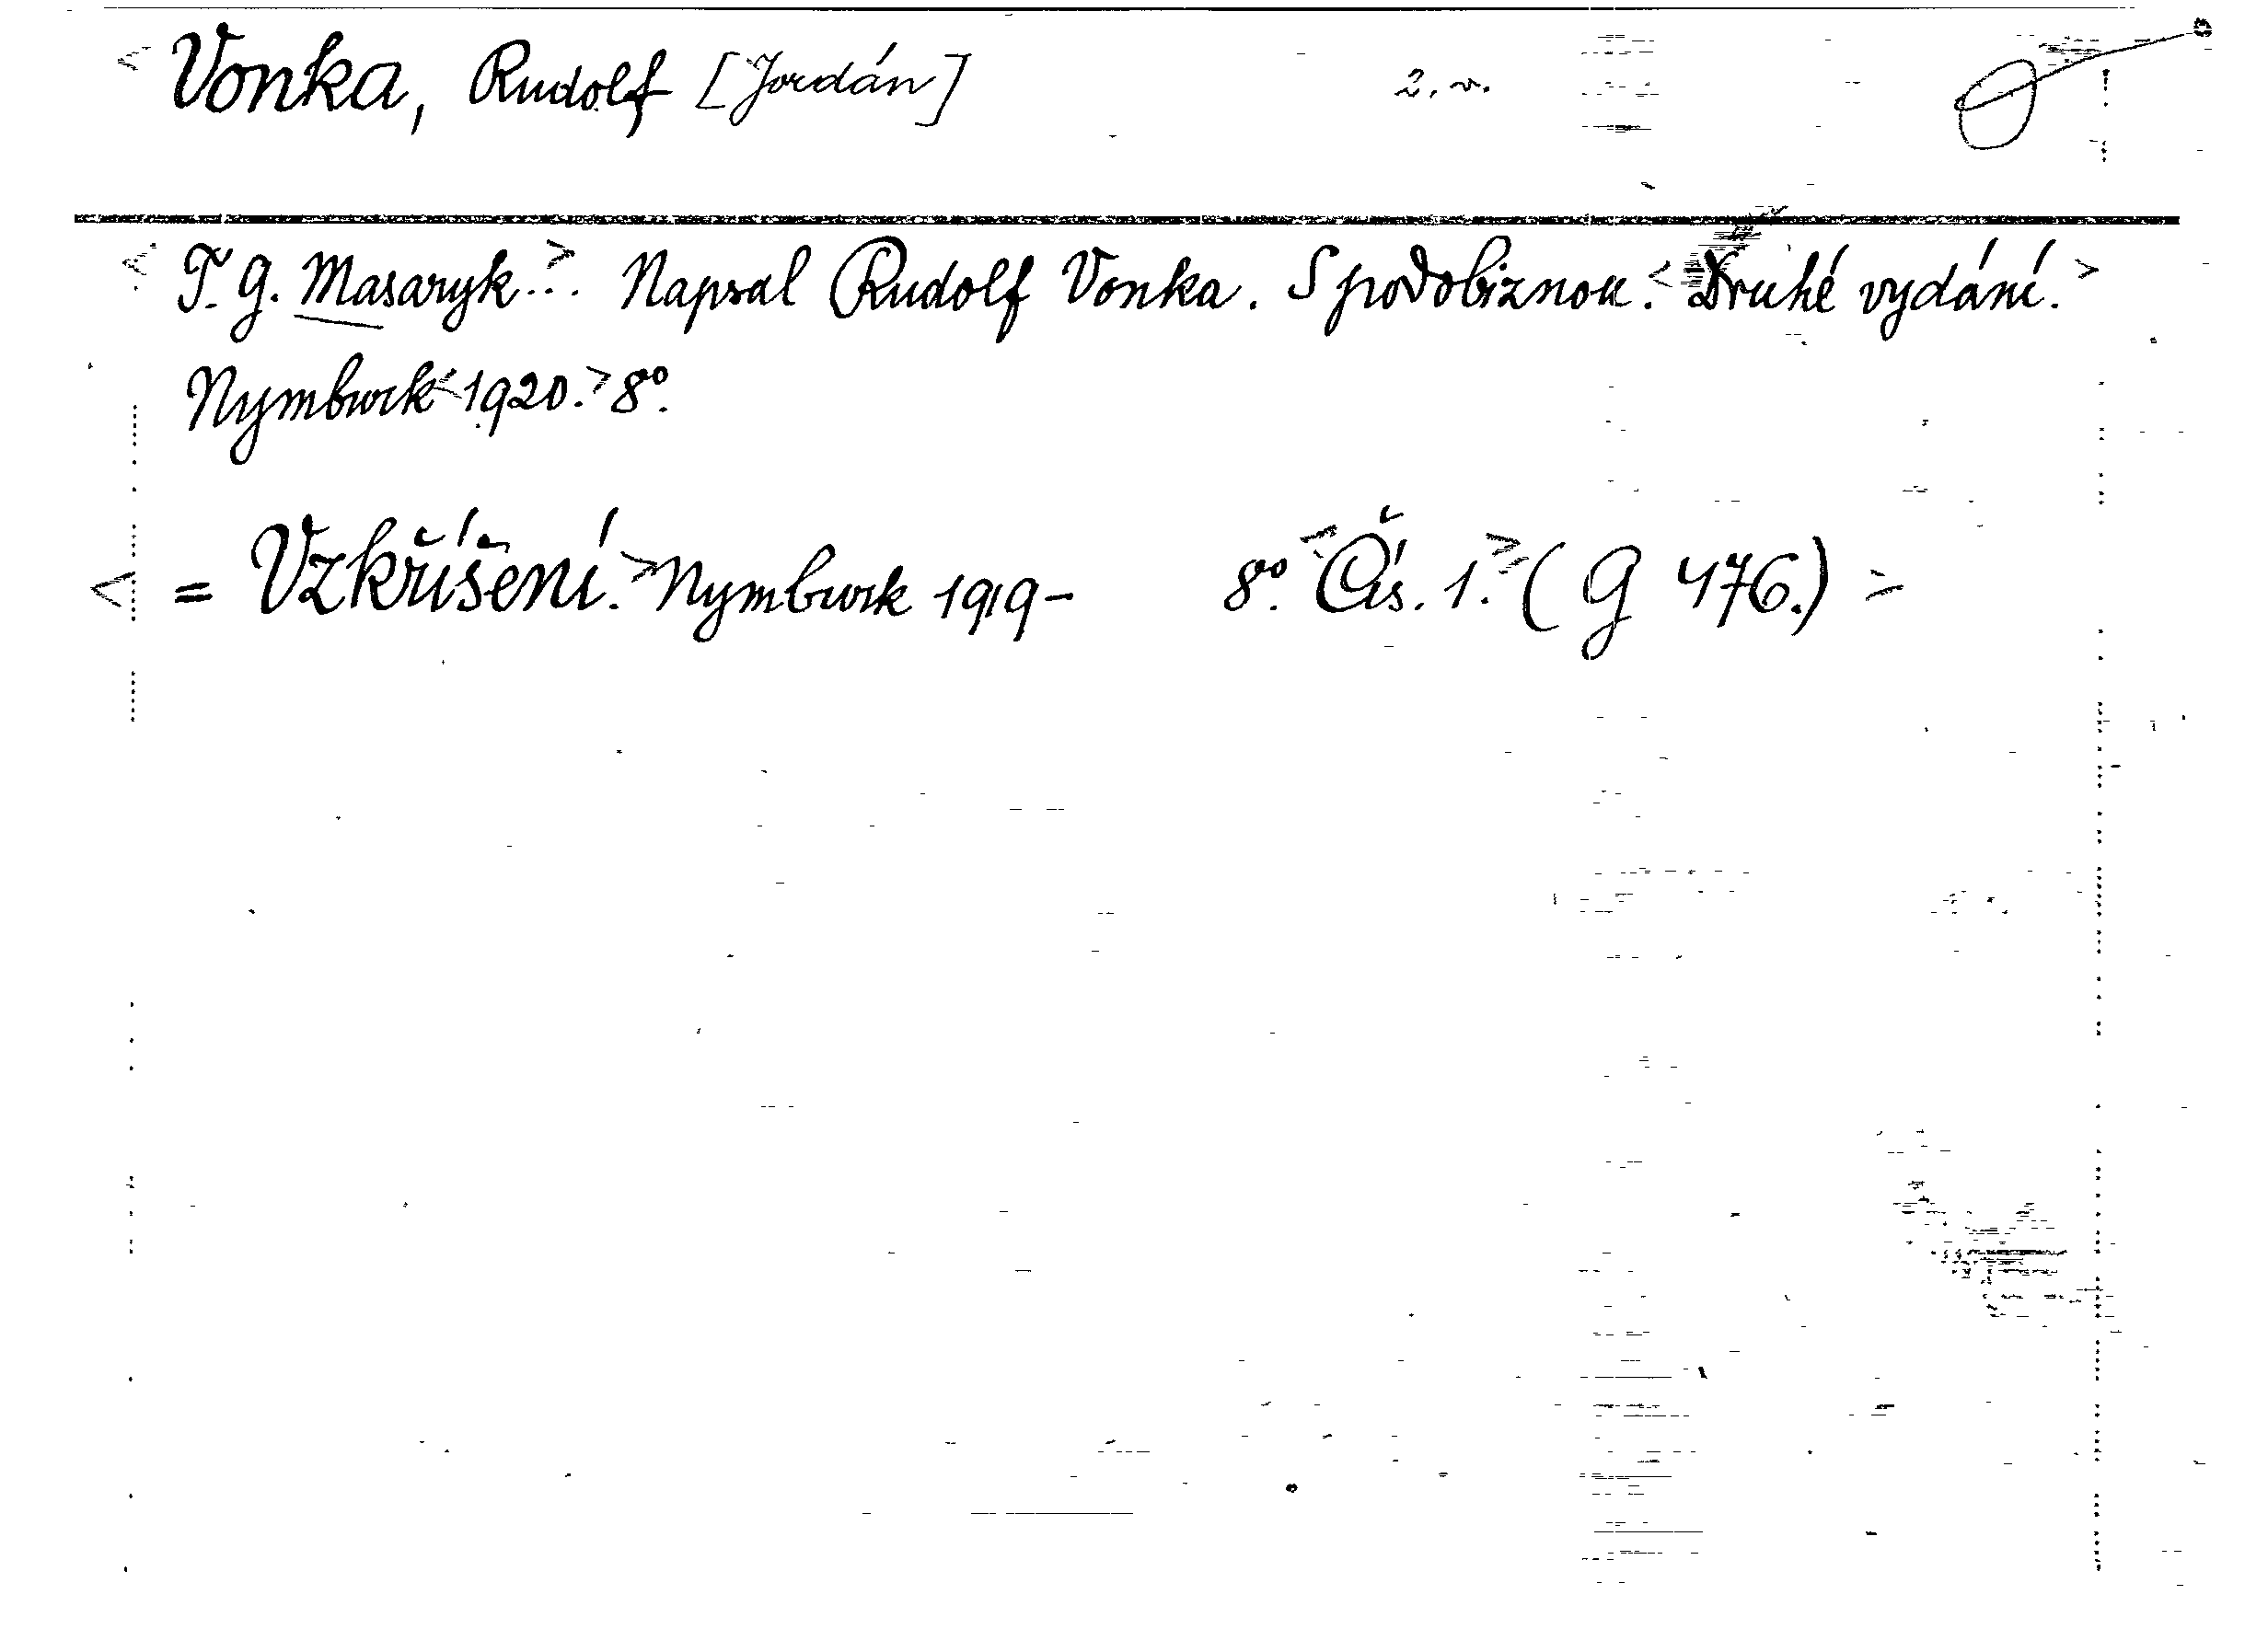 < Vonka, Rudolf [Jordán] 2. v.
< T. G. Masaryk.> .. Napsal Rudolf Vonka. S podobiznou. < Druhé vydání. >
Nymburk < 1920. > 8º.
< = Vzkříšení. > Nymburk 1919- 8º. < Čís. 1. > ( G 476.) >